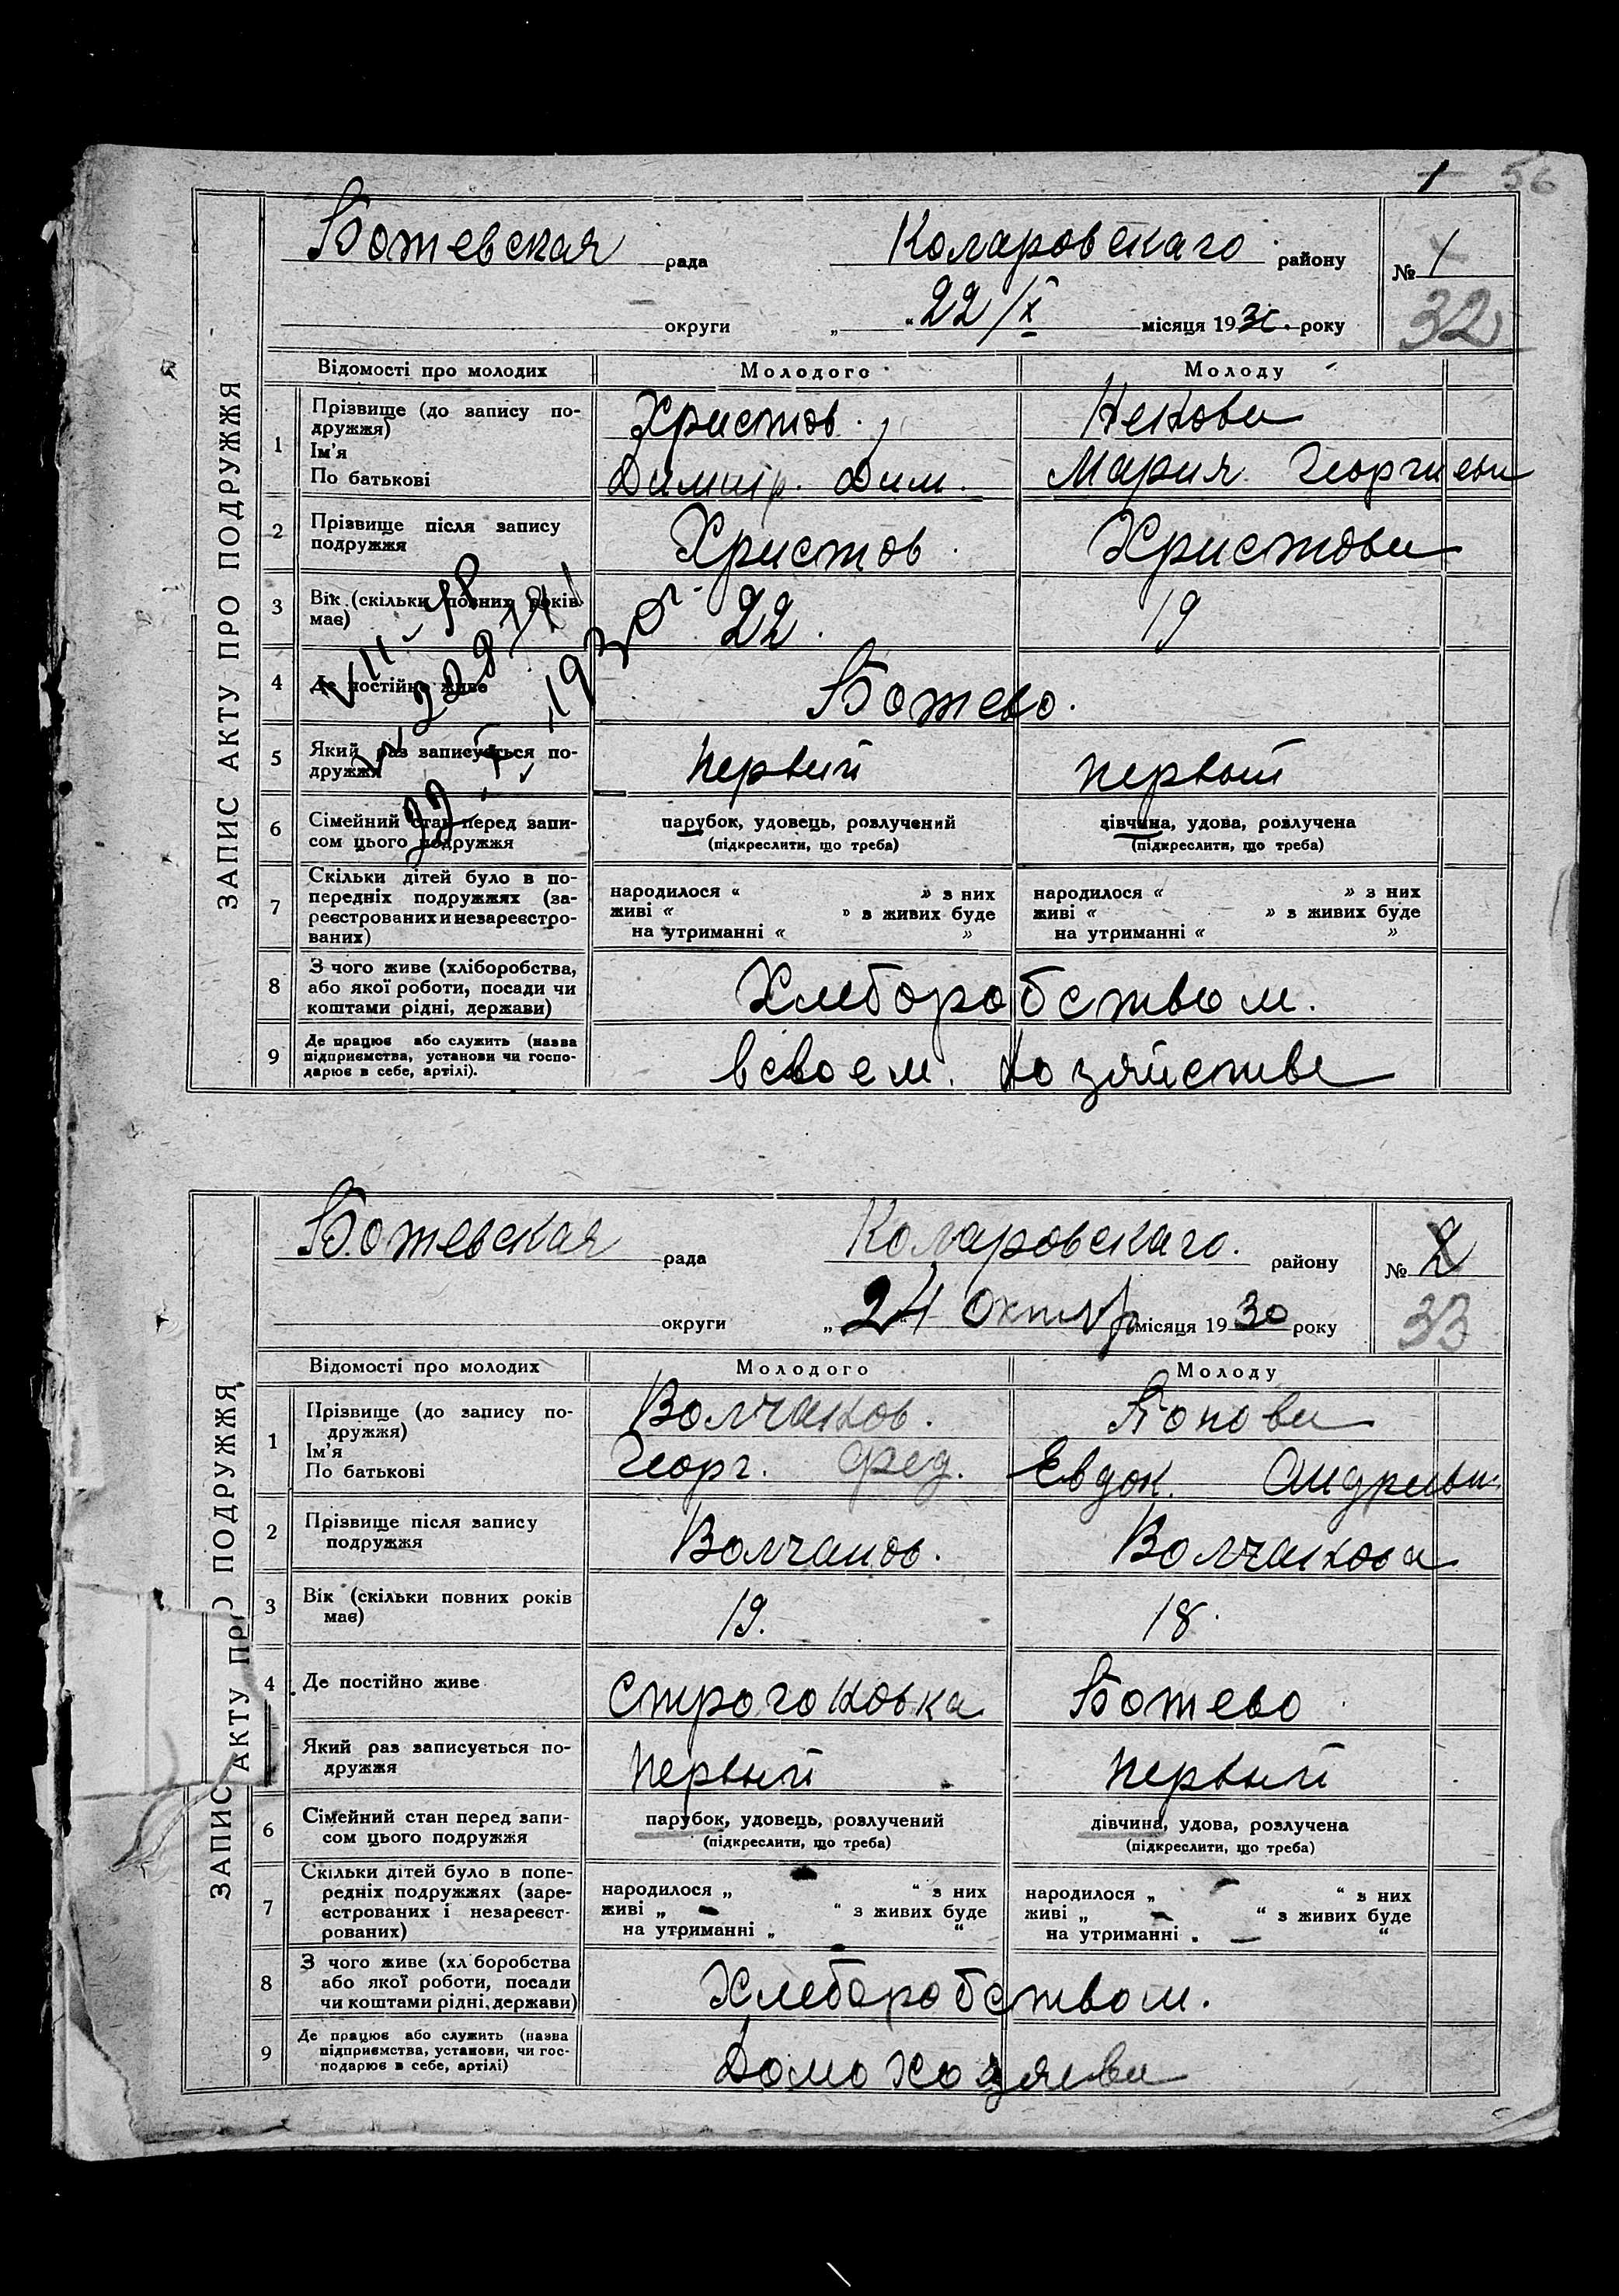 1 56
Ботевская рада Коларовскаго району № 1
округи „ “ 22/X місяця 1930 року 32
ЗАПИС АКТУ ПРО ПОДРУЖЖЯ
Відомості про молодих Молодого Молоду
1 Прізвище (до запису по- Христов. Некова
дружжя)
Ім'я
По батькові Димитр. Дим. Мария Георгиева
2 Прізвище після запису Христов Христова
подружжя
3 Вік (скільки повних років 22. 19
має)
4 Де постійно живе Ботево.
5 Який раз записується по- первый первый
дружжя
6 Сімейний стан перед запи- парубок, удовець, розлучений дівчина, удова, розлучена
сом цього подружжя (підкреслити, що треба) (підкреслити, що треба)
7 Скільки дітей було в по-
передніх подружжях (за- народилося « » з них народилося « » з них
реєстрованих и незареєстро- живі « » з живих буде живі « » з живих буде
ваних) на утриманні « » на утриманні « »
8 З чого живе (хліборобства,
або якої роботи, посади чи Хлеборобством.
коштами рідні, держави)
9 Де працює або служить (назва
підприємства, установи чи госпо- в своем. хозяйстве
дарює в себе, артілі).
Ботевская рада Коларовскаго. району № 2
округи „ 24 Октяр місяця 1930 року 33
ЗАПИС АКТУ ПРО ПОДРУЖЖЯ
Відомості про молодих Молодого Молоду
1 Прізвище (до запису по- Волчанов. Попова
дружжя)
Ім'я Георг. Фед. Евдок. Андреева
По батькові
2 Прізвище після запису Волчанов. Волчанова
подружжя
3 Вік (скільки повних років 19. 18.
має)
4 Де постійно живе Строгоновка Ботево
Який раз записується по- первый первый
дружжя
6 Сімейний стан перед запи- парубок, удовець, розлучений дівчина, удова, розлучена
сом цього подружжя (підкреслити, що треба) (підкреслити, що треба)
7 Скільки дітей було в попе-
редніх подружжях (заре- народилося „ “ з них народилося „ “ з них
єстрованих і незареєст- живі „ “ з живих буде живі „ “ з живих буде
рованих) на утриманні „ “ на утриманні „ “
8 З чого живе (хл боробства
або якої роботи, посади Хлеборобством.
чи коштами рідні, держави)
9 Де працює або служить (назва
підприємства, установи, чи гос- Домохозяева
подарює в себе, артілі)